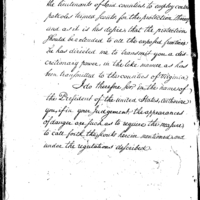 the lieutenants of said counties to employ certain
patroles or scouts for the protection thereof
and as it is his desire that the protection
should be extended to all the exposed frontiers
he has directed me to transmit you a dis
cretionary power in the like manner as has
been transmitted to the counties of Virginia
I do therefore, Sir, in the name of
the President of the united States, authorize
you, if in your Judgement the appearances
of danger are such as to require the measure
to call forth the scouts herein mentioned and
under the regulations described